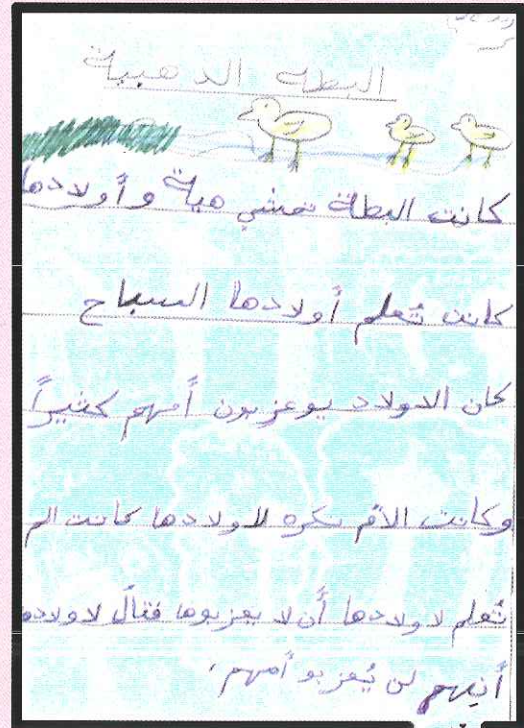 البطه الذهبية
كانت البطة تمشي هية وأولادها
كانت تُعلم أولادها السباح
كان الاولاد يوعزبون أمهم كثيراً
وكانت الأم تكره لاولادها كانت الم
تُعلم لاولادها أن لا يعزبوها فقال لاولاده
أنهم لن يُعزبو أمهم.